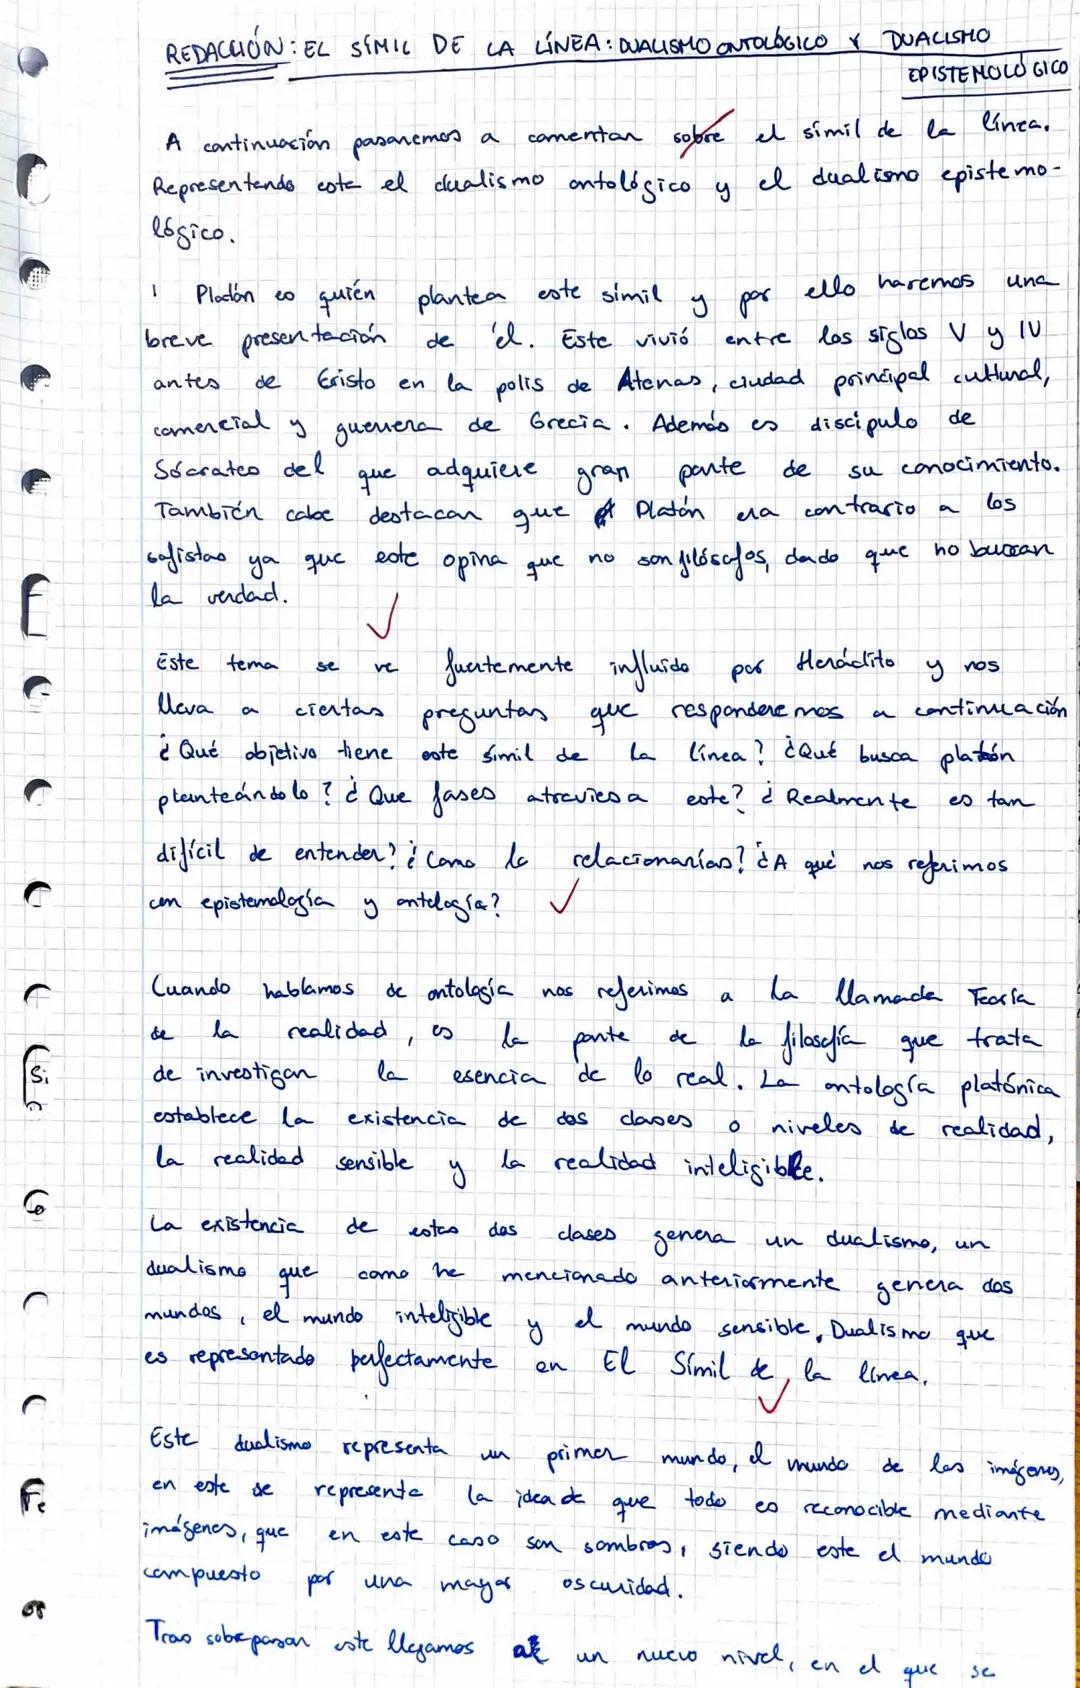 REDACCIÓN: EL SÍMIL DE LA LÍNEA: DUALISMO ONTOLÓGICO Y DUALISMO
EPISTEMOLÓGICO
A continuación pasaremos a comentar sobre el símil de la línea.
Representando este el dualismo ontológico y el dualismo epistemo-
lógico.
Platón es quién plantea este símil y por ello haremos una
breve presentación de él. Este vivió entre los siglos V y IV
antes de Cristo en la polis de Atenas, ciudad principal cultural,
comercial y guerrera de Grecia. Además es discipulo de
Sócrates del que adquiere gran parte de su conocimiento.
También cabe destacar que Platón era contrario a los
sofistas ya que este opina que no son filósofos, dado que no buscan
la verdad.
Este tema se ve fuertemente influido por Heráclito y nos
lleva a ciertas preguntas que responderemos a continuación
¿Qué objetivo tiene este símil de la línea? ¿Qué busca platón
planteándolo? ¿Que fases atraviesa este? ¿Realmente es tan
difícil de entender? ¿Como lo relacionarías? ¿A qué nos referimos
con epistemología y ontología?
Cuando hablamos de ontología nos referimos a la llamada Teoría
de la realidad, es la parte de la filosofía que trata
de investigar la esencia de lo real. La ontología platónica
establece la existencia de dos clases o niveles de realidad,
la realidad sensible y la realidad inteligible.
La existencia de estas dos clases genera un dualismo, un
dualismo que como he mencionado anteriormente genera dos
mundos, el mundo inteligible y el mundo sensible. Dualismo que
es representado perfectamente en El Símil de la línea.
Este dualismo representa un primer mundo, el mundo de las imágenes,
en este se representa la idea de que todo es reconocible mediante
imágenes, que en este caso son sombras, siendo este el mundo
compuesto por una mayor oscuridad.
Tras sobrepasar este llegamos a un nuevo nivel, en el que se
Si